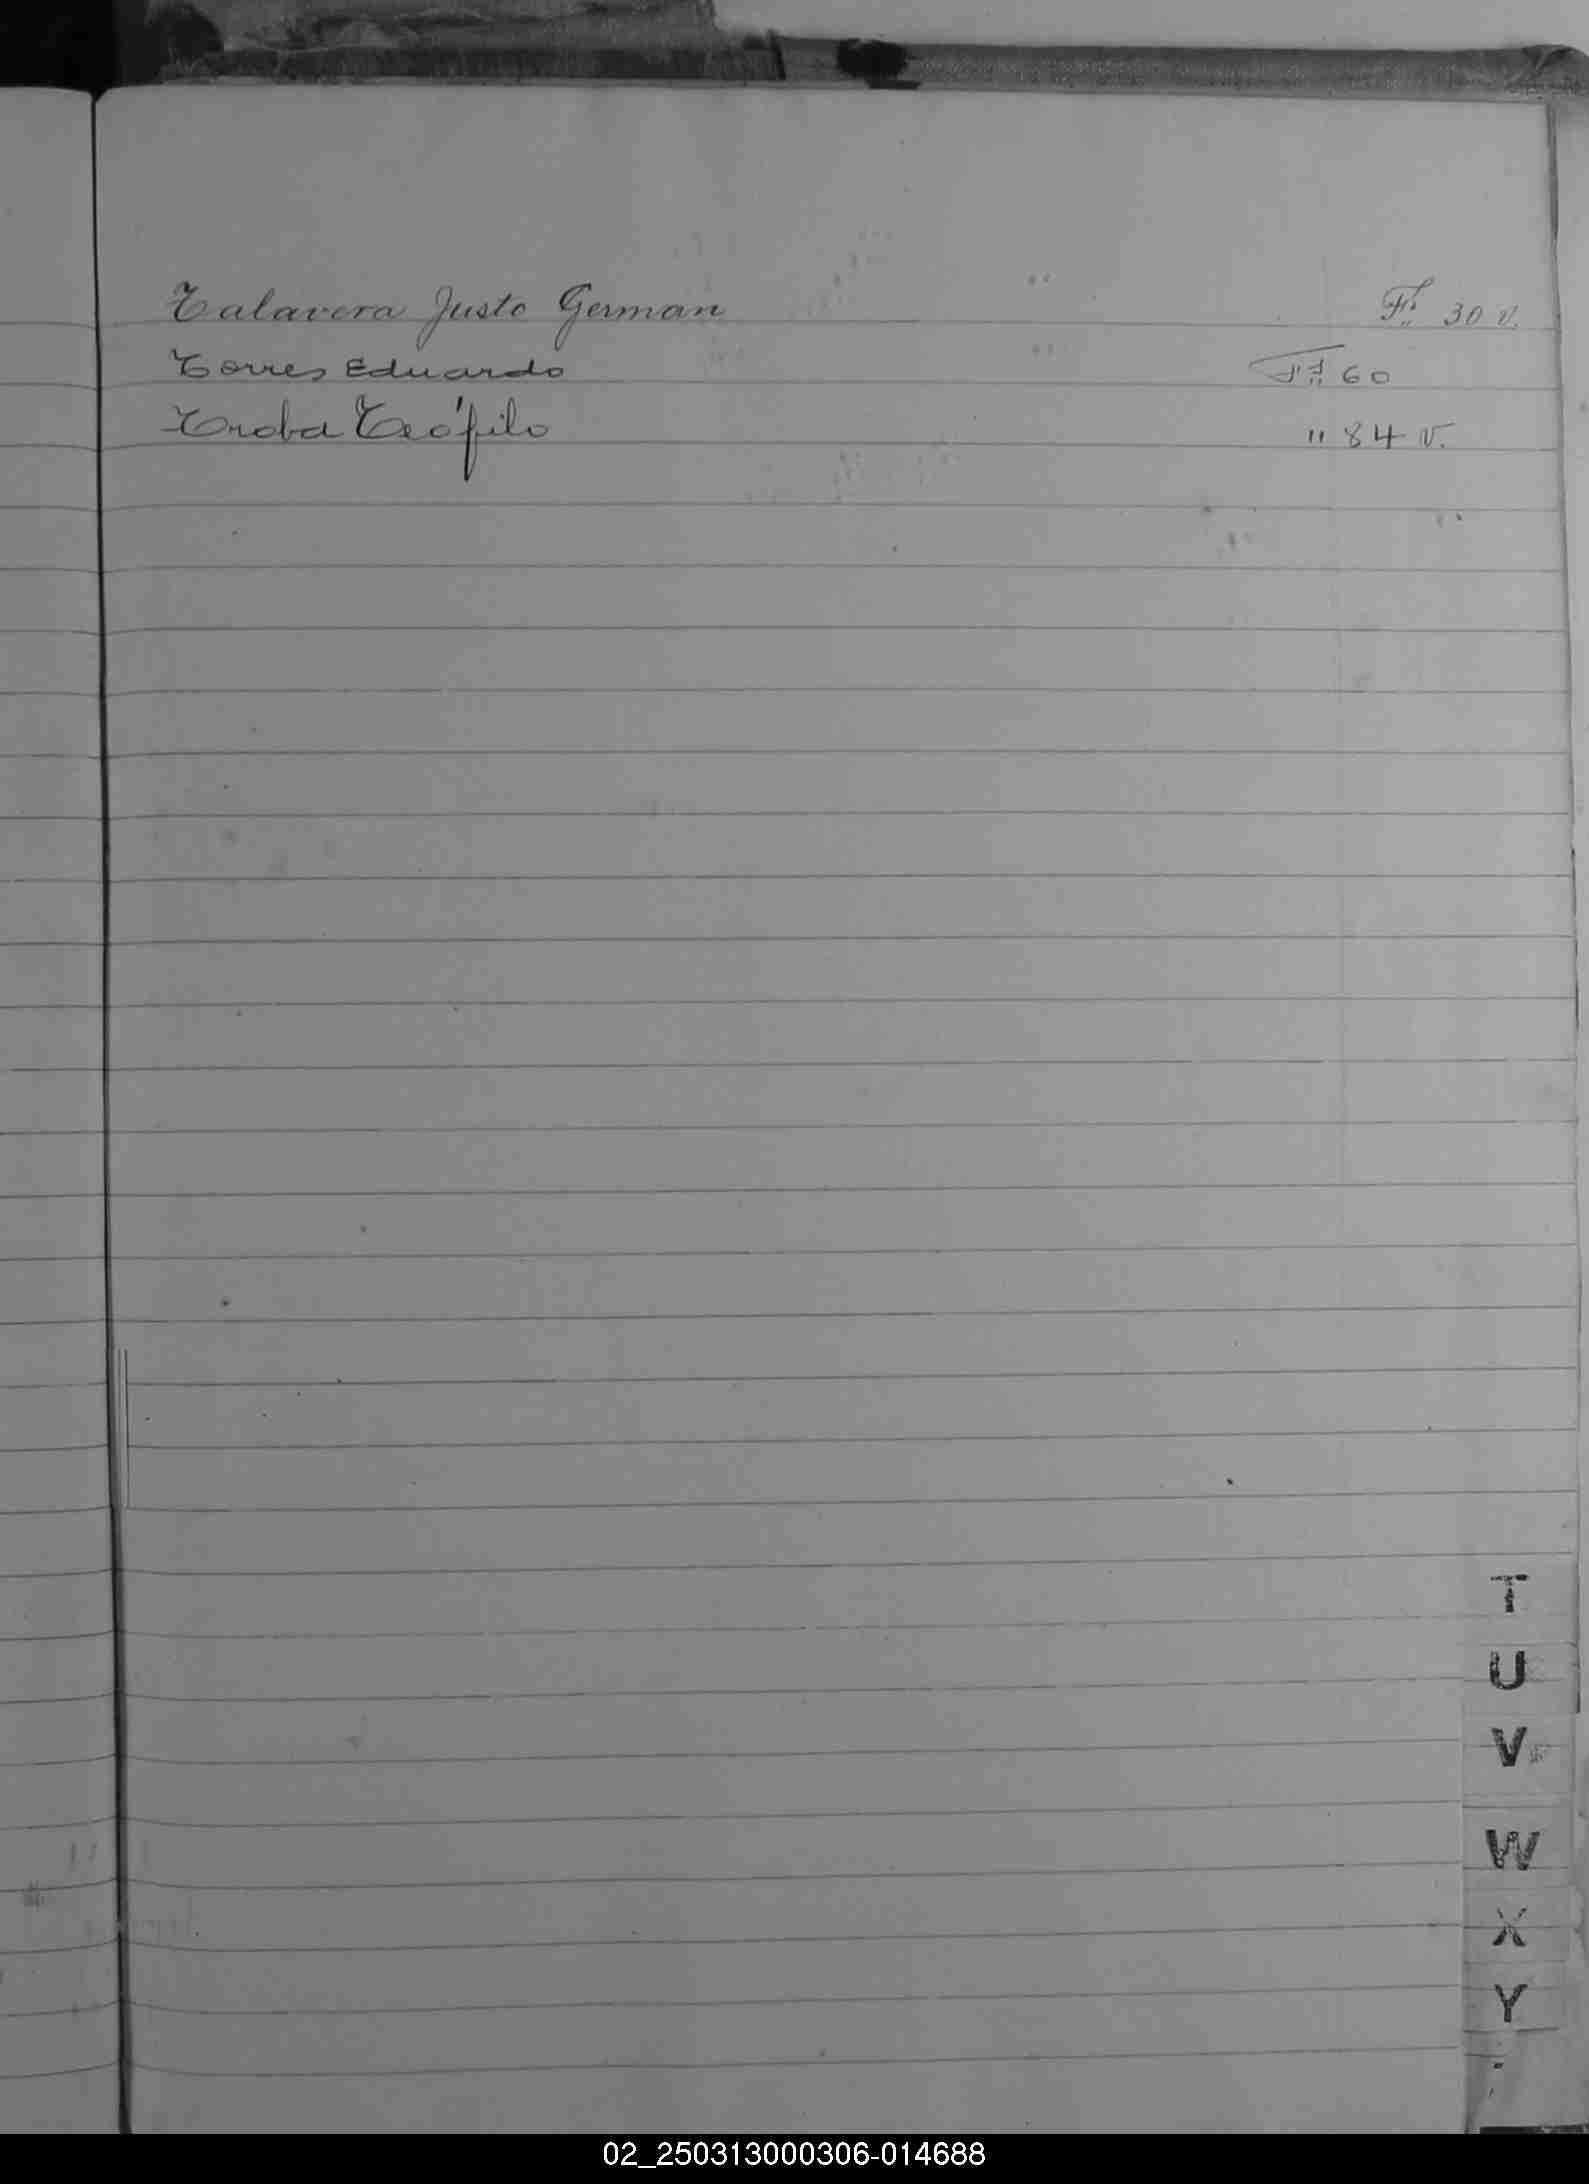 Talavera Justo German F° 30 v.
Torres Eduardo F° 60
Troba Teófilo " 84 v.
T
U
V
W
X
Y
02_250313000306-014688